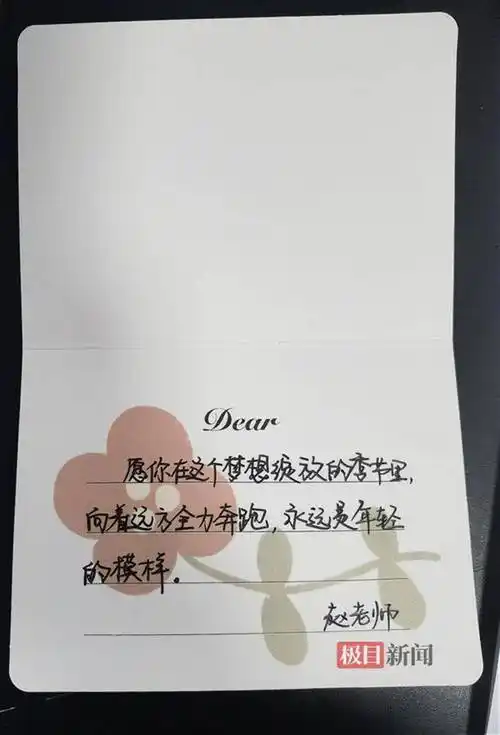 Dear
愿你在这个梦想绽放的季节里,
向着远方全力奔跑,永远是年轻
的模样。
赵老师
极目新闻